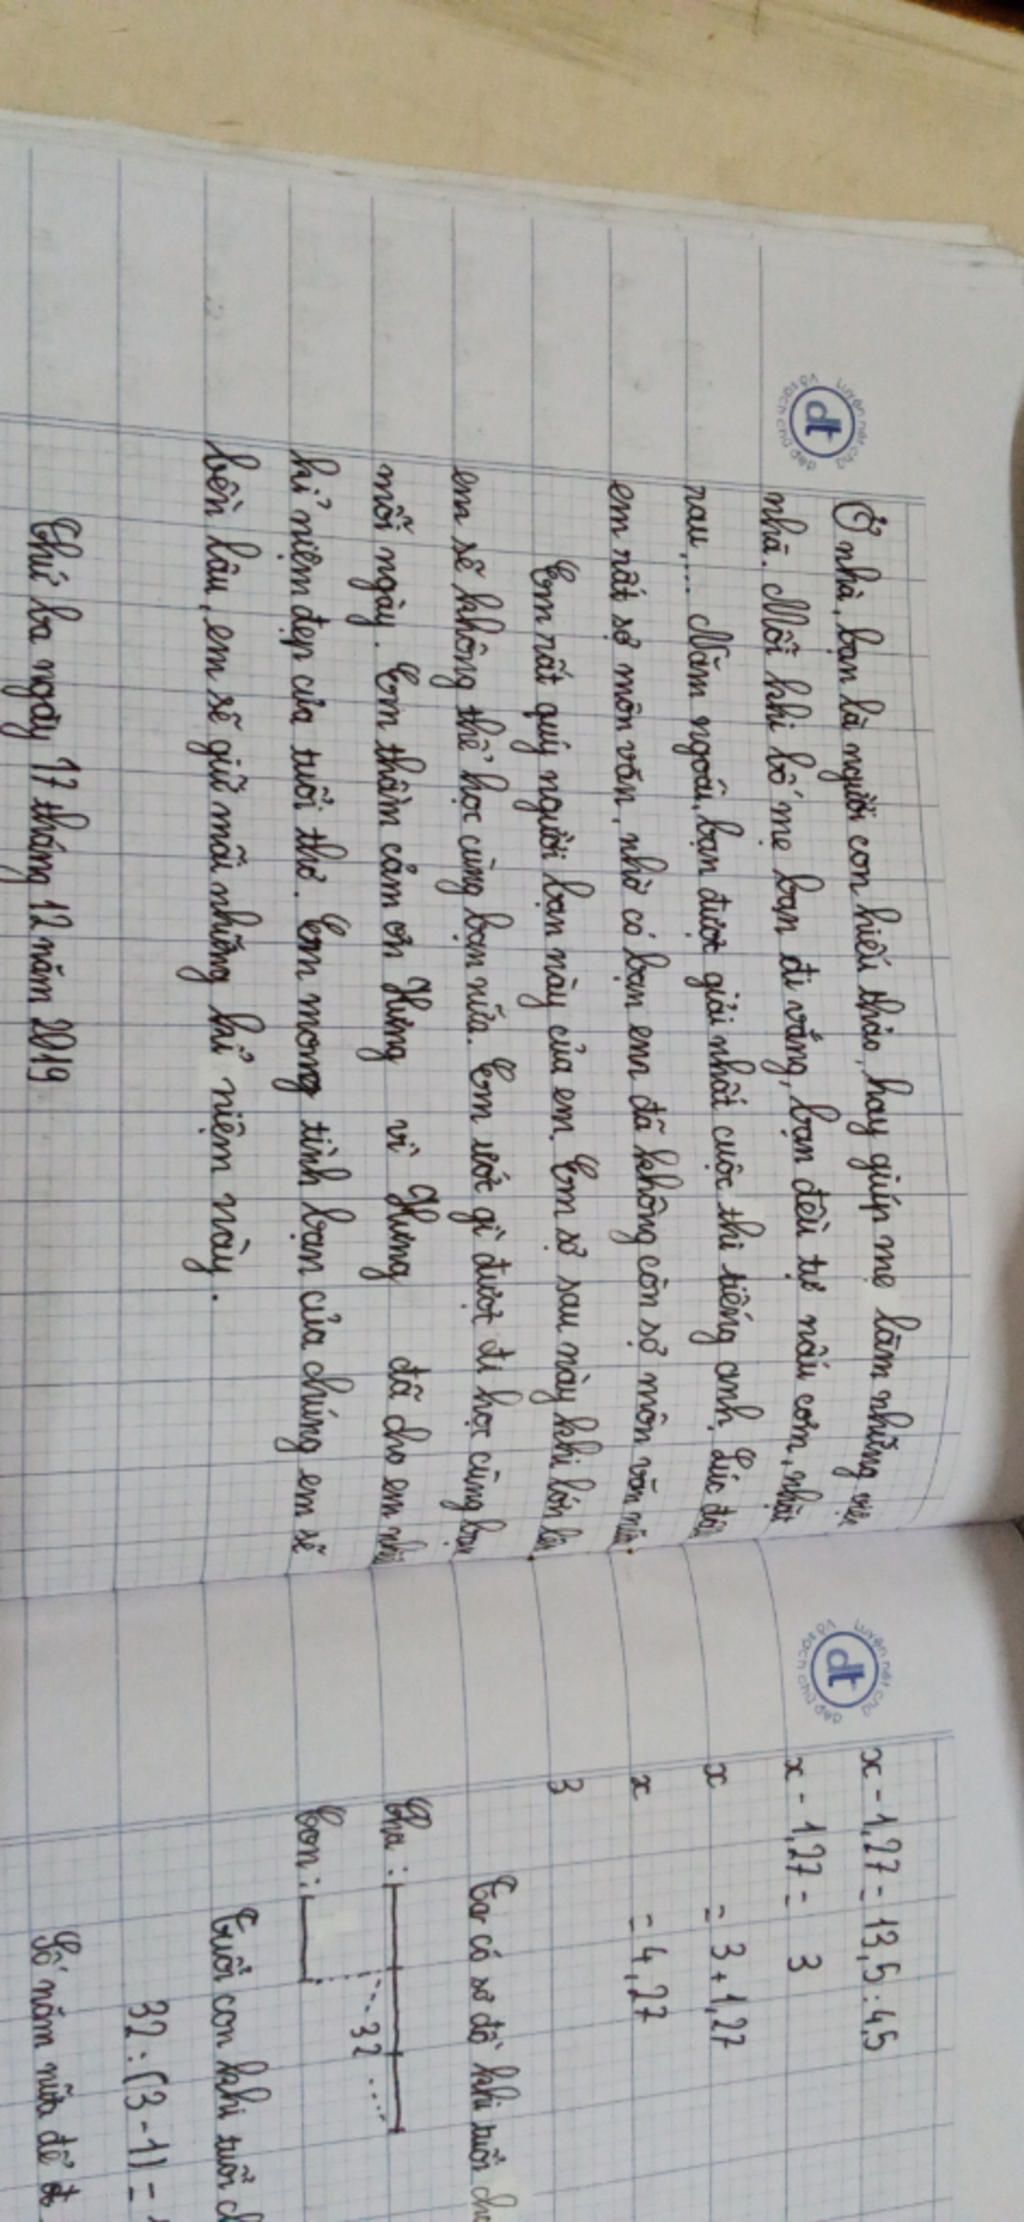 Luyện nét chữ
dt
Vở sạch chữ đẹp
Ở nhà, bạn là người con hiếu thảo, hay giúp mẹ làm những việc
nhà. Mỗi khi bố mẹ bạn đi vắng, bạn đều tự nấu cơm, nhặt
rau,... Năm ngoái, bạn được giải nhất cuộc thi tiếng anh. Lúc đầu
em rất sợ môn văn, nhờ có bạn em đã không còn sợ môn văn nữa.
Em rất quý người bạn này của em. Em sợ sau này khi lớn lên,
em sẽ không thể học cùng bạn nữa. Em ước gì được đi học cùng bạn
mỗi ngày. Em thầm cảm ơn Hưng vì Hưng đã cho em nhữ
kỉ niệm đẹp của tuổi thơ. Em mong tình bạn của chúng em sẽ
bền lâu, em sẽ giữ mãi những kỉ niệm này.
Thứ ba ngày 17 tháng 12 năm 2019
Luyện nét chữ
dt
Vở sạch chữ đẹp
x - 1,27 = 13,5 : 4,5
x - 1,27 = 3
x = 3 + 1,27
x = 4,27
3
Ta có sơ đồ khi tuổi cha
Cha :
32
Con :
Tuổi con khi tuổi c
32 : (3 - 1) =
Số năm nữa để